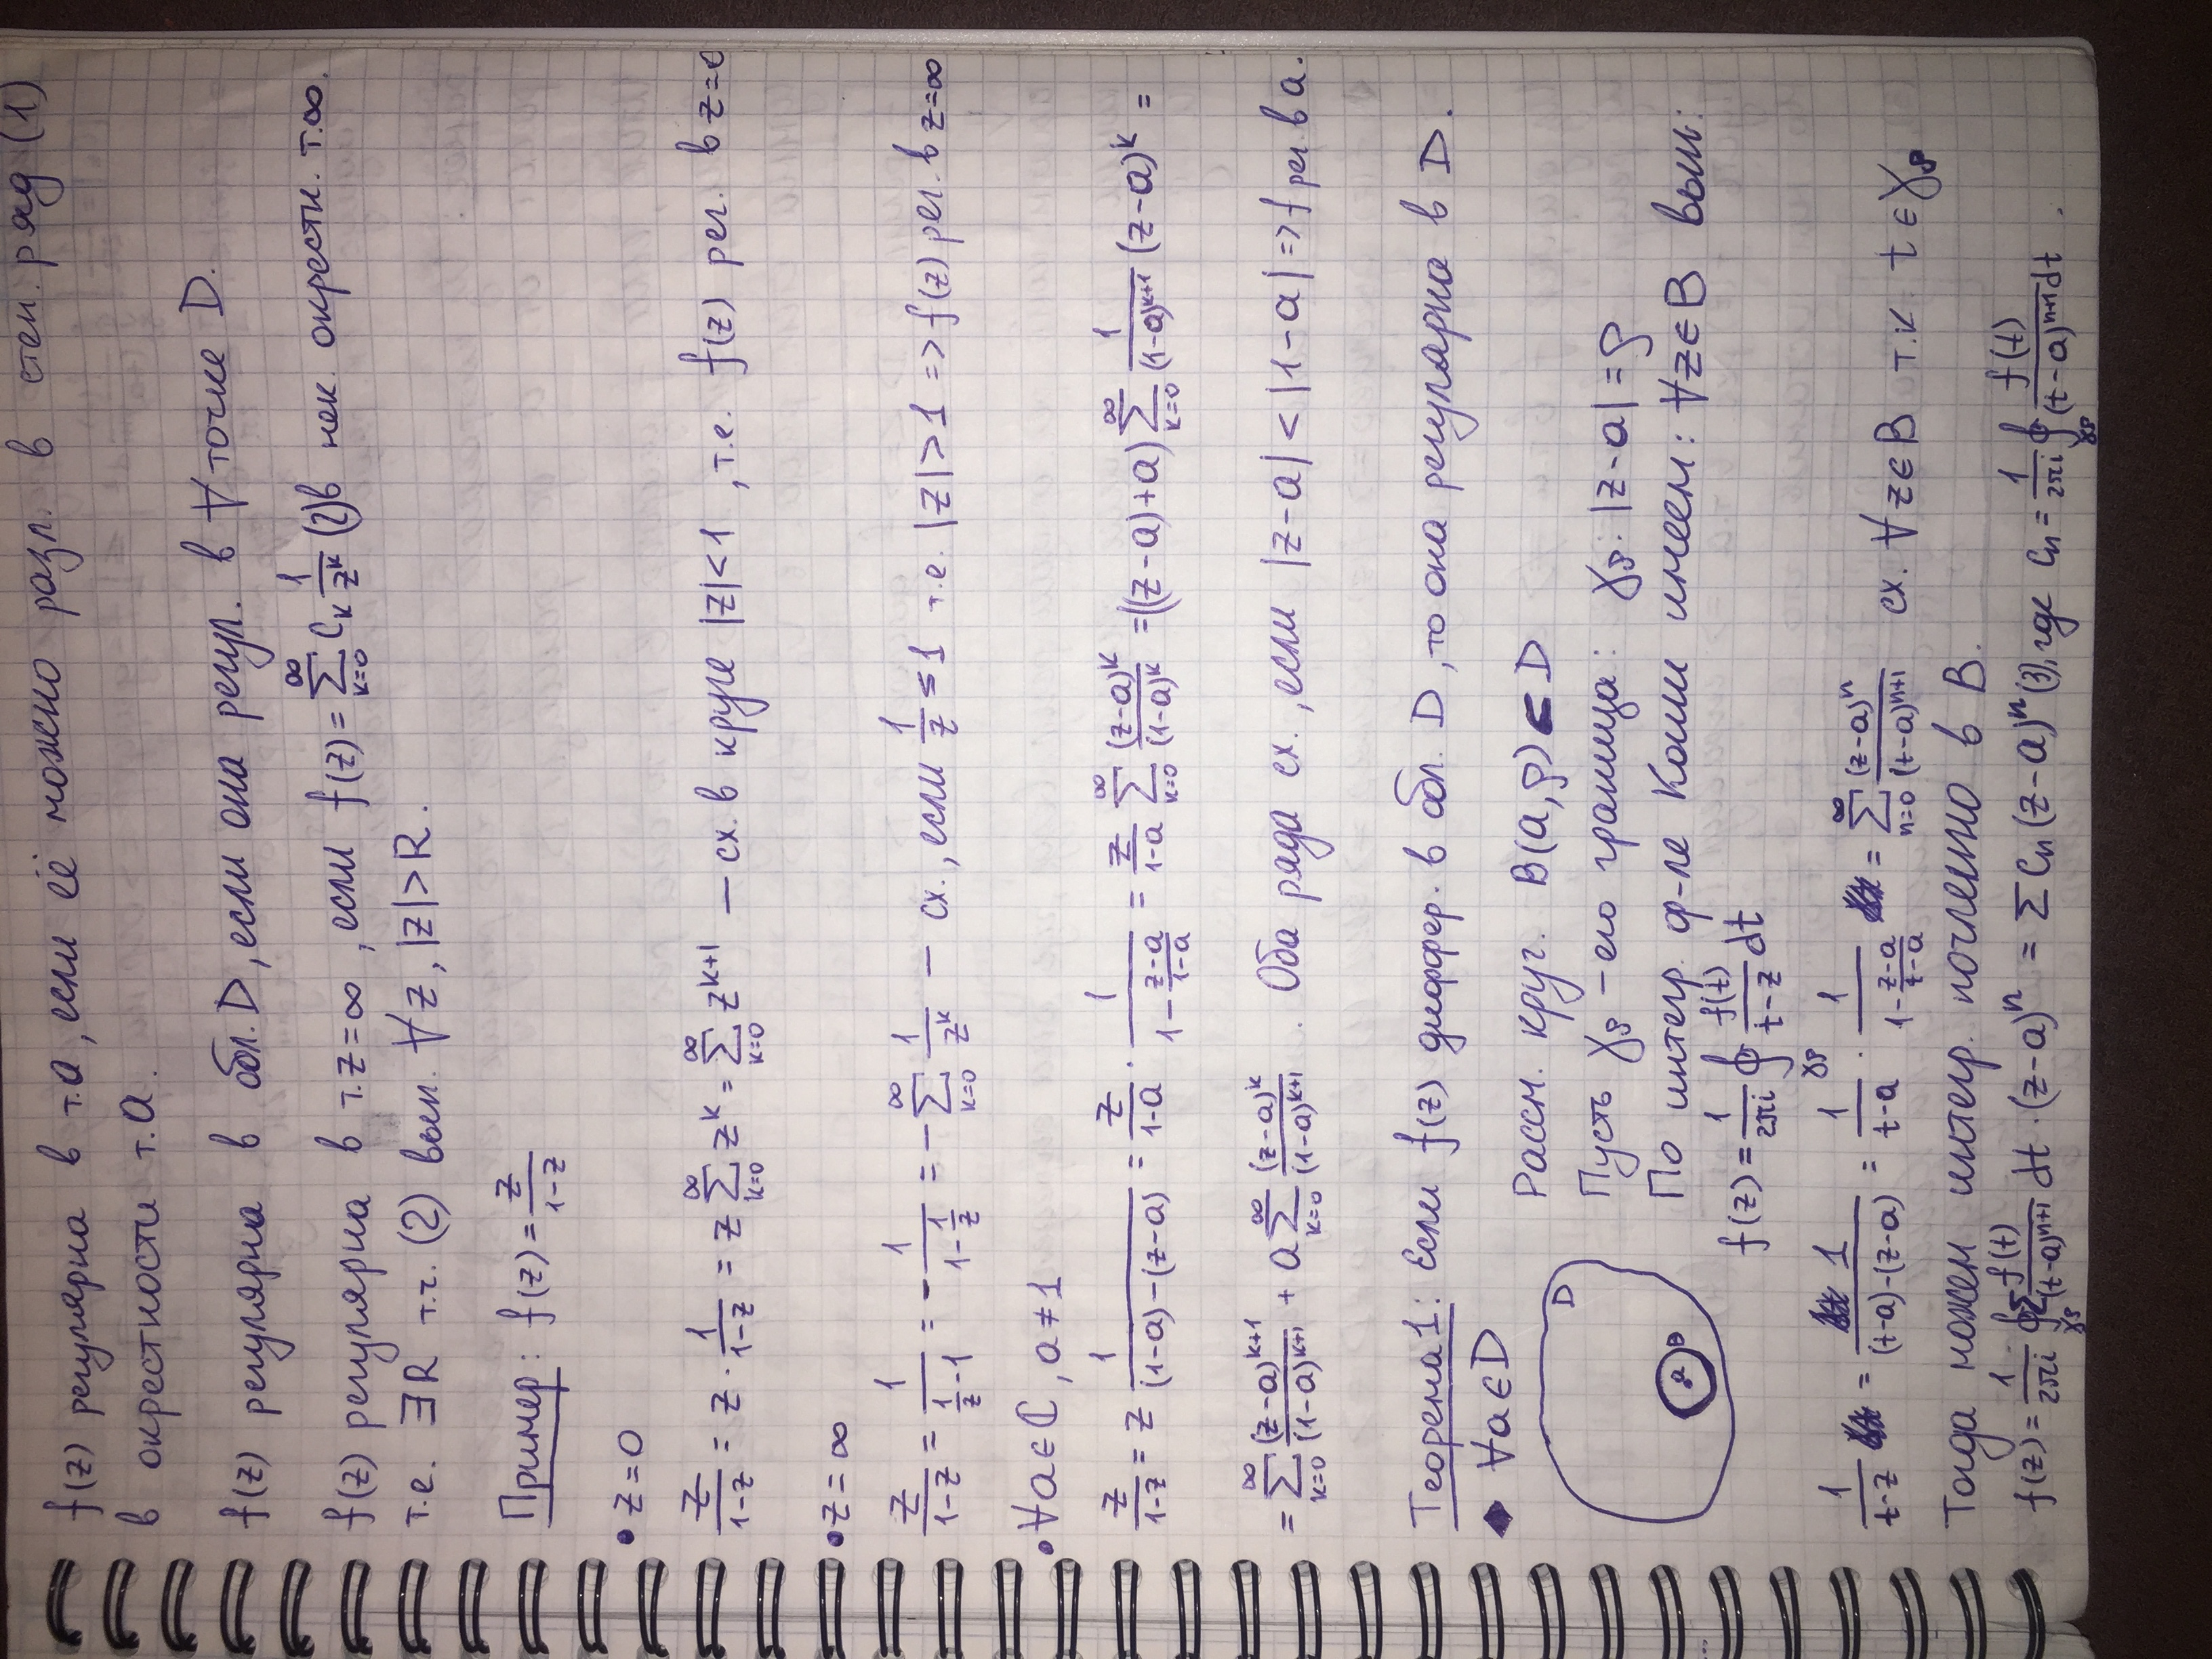 f(z) регулярна в т.a, если её можно разл. в степ. ряд (1)
в окрестности т.a.
f(z) регулярна в обл. D, если она регул. в ∀ точке D.
f(z) регулярна в т.z=∞, если f(z) = ∑_{k=0}^{∞} C_k 1/z^k (2) в нек. окрестн. т.∞.
т.е. ∃R т.ч. (2) вып. ∀z, |z|>R.
Пример: f(z) = z/(1-z)
• z=0
z/(1-z) = z · 1/(1-z) = z ∑_{k=0}^{∞} z^k = ∑_{k=0}^{∞} z^{k+1} — сх. в круге |z|<1, т.е. f(z) рег. в z=0
• z=∞
z/(1-z) = 1/(1/z - 1) = - 1/(1 - 1/z) = - ∑_{k=0}^{∞} 1/z^k – сх., если 1/z ≤ 1 т.е. |z|>1 => f(z) рег. в z=∞
• ∀a∈ℂ, a≠1
z/(1-z) = z 1/((1-a)-(z-a)) = z/(1-a) · 1/(1 - (z-a)/(1-a)) = z/(1-a) ∑_{k=0}^{∞} (z-a)^k/(1-a)^k = ((z-a)+a) ∑_{k=0}^{∞} 1/(1-a)^{k+1} (z-a)^k =
= ∑_{k=0}^{∞} (z-a)^{k+1}/(1-a)^{k+1} + a ∑_{k=0}^{∞} (z-a)^k/(1-a)^{k+1}. Оба ряда сх., если |z-a| < |1-a| => f рег. в a.
Теорема 1: Если f(z) диффер. в обл. D, то она регулярна в D.
◆ ∀a∈D
D
a B
Рассм. круг. B(a,ρ) ⊂ D
Пусть γ_ρ – его граница: γ_ρ: |z-a| = ρ
По интегр. ф-ле Коши имеем: ∀z∈B вып:
f(z) = 1/(2πi) ∮_{γ_ρ} f(t)/(t-z) dt
1/(t-z) = 1/((t-a)-(z-a)) = 1/(t-a) · 1/(1 - (z-a)/(t-a)) = ∑_{n=0}^{∞} (z-a)^n/(t-a)^{n+1} сх. ∀z∈B т.к. t∈γ_ρ
Тогда можем интегр. почленно в B.
f(z) = 1/(2πi) ∮_{γ_ρ} ∑ f(t)/(t-a)^{n+1} dt · (z-a)^n = ∑ C_n (z-a)^n (3), где C_n = 1/(2πi) ∮_{γ_ρ} f(t)/(t-a)^{n+1} dt.